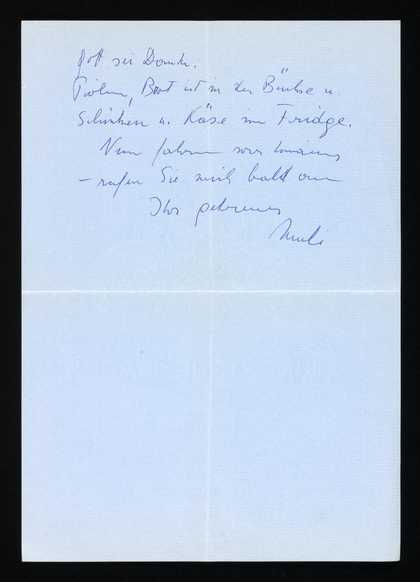 Gott sei Dank.
Brot ist in der Büchse u.
Schinken u. Käse im Fridge.
Nun fahren wir
– rufen Sie mich bald an
Ihr getreuer